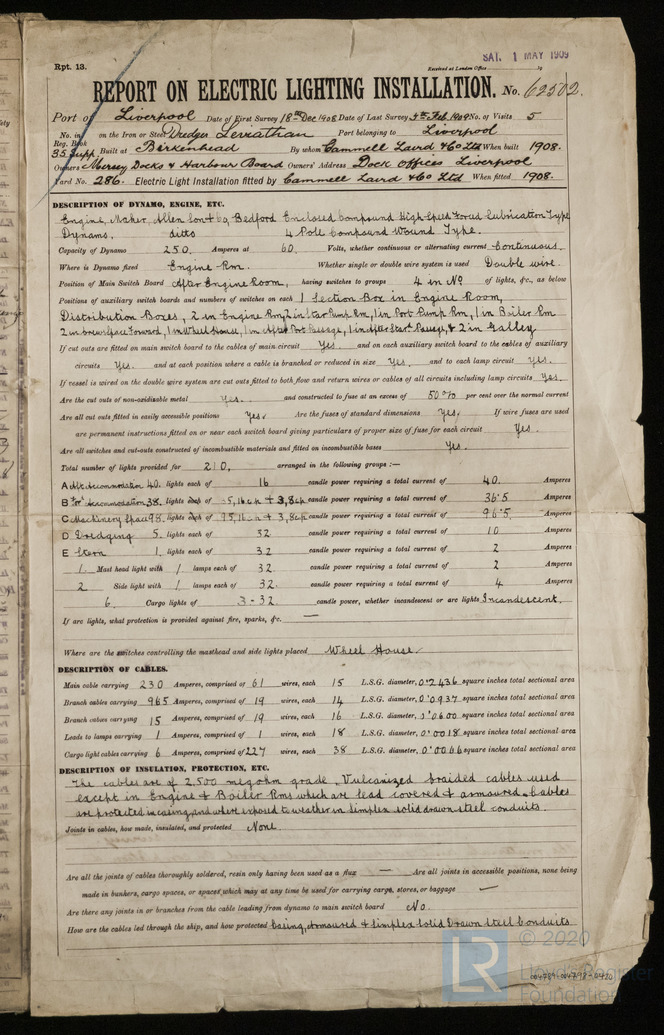 SAT. 1 MAY 1909
Rpt. 13.
Received at London Office 19
REPORT ON ELECTRIC LIGHTING INSTALLATION. No. 62502.
Port of Liverpool Date of First Survey 18th Dec 1908 Date of Last Survey 5th Feb 1909 No. of Visits 5
No. in Reg. Book 35 Supp on the Iron or Steel Dredger Leviathan Port belonging to Liverpool
Built at Birkenhead By whom Cammell Laird & Co Ltd When built 1908.
Owners Mersey Docks & Harbour Board Owners' Address Dock Offices Liverpool
Yard No. 286. Electric Light Installation fitted by Cammell Laird & Co Ltd When fitted 1908.
DESCRIPTION OF DYNAMO, ENGINE, ETC.
Engine, Maker, Allen Son & Co, Bedford Enclosed Compound High Speed Forced Lubrication Type
Dynamo. ditto 4 Pole Compound Wound Type.
Capacity of Dynamo 250. Amperes at 60. Volts, whether continuous or alternating current Continuous.
Where is Dynamo fixed Engine Rm. Whether single or double wire system is used Double wire.
Position of Main Switch Board After Engine Room, having switches to groups 4 in No of lights, &c., as below
Positions of auxiliary switch boards and numbers of switches on each 1 Section Box in Engine Room,
Distribution Boxes, 2 in Engine Rm, 2 in Star Pump Rm, 1 in Port Pump Rm, 1 in Boiler Rm
2 in Crew Space Forward, 1 in Wheel House, 1 in After Port Passage, 1 in After Starb Passage, & 2 in Galley
If cut outs are fitted on main switch board to the cables of main circuit Yes. and on each auxiliary switch board to the cables of auxiliary
circuits Yes. and at each position where a cable is branched or reduced in size Yes. and to each lamp circuit Yes.
If vessel is wired on the double wire system are cut outs fitted to both flow and return wires or cables of all circuits including lamp circuits Yes.
Are the cut outs of non-oxidizable metal Yes. and constructed to fuse at an excess of 50% per cent over the normal current
Are all cut outs fitted in easily accessible positions Yes. Are the fuses of standard dimensions Yes. If wire fuses are used
are permanent instructions fitted on or near each switch board giving particulars of proper size of fuse for each circuit Yes.
Are all switches and cut-outs constructed of incombustible materials and fitted on incombustible bases Yes.
Total number of lights provided for 210, arranged in the following groups :—
A Aft Accommodation 40. lights each of 16 candle power requiring a total current of 40. Amperes
B For'd Accommodation 38. lights each of 35, 16 cp + 3, 8 cp candle power requiring a total current of 36.5 Amperes
C Machinery Space 98. lights each of 95, 16 cp + 3, 8 cp candle power requiring a total current of 96.5. Amperes
D Dredging 5. lights each of 32 candle power requiring a total current of 10 Amperes
E Stern 1. lights each of 32 candle power requiring a total current of 2 Amperes
1. Mast head light with 1 lamps each of 32. candle power requiring a total current of 2 Amperes
2 Side light with 1 lamps each of 32. candle power requiring a total current of 4 Amperes
6. Cargo lights of 3 - 32. candle power, whether incandescent or arc lights Incandescent.
If arc lights, what protection is provided against fire, sparks, &c. —
Where are the switches controlling the masthead and side lights placed Wheel House
DESCRIPTION OF CABLES.
Main cable carrying 230 Amperes, comprised of 61 wires, each 15 L.S.G. diameter, 0.2436 square inches total sectional area
Branch cables carrying 96.5 Amperes, comprised of 19 wires, each 14 L.S.G. diameter, 0.0937 square inches total sectional area
Branch cables carrying 15 Amperes, comprised of 19 wires, each 16 L.S.G. diameter, 0.0600 square inches total sectional area
Leads to lamps carrying 1 Amperes, comprised of 1 wires, each 18 L.S.G. diameter, 0.0018 square inches total sectional area
Cargo light cables carrying 6 Amperes, comprised of 227 wires, each 38 L.S.G. diameter, 0.0066 square inches total sectional area
DESCRIPTION OF INSULATION, PROTECTION, ETC.
The cables are of 2,500 megohm grade, Vulcanized braided cables used
except in Engine & Boiler Rms which are lead covered & armoured. Cables
are protected in casing, and where exposed to weather in simplex solid drawn steel conduits.
Joints in cables, how made, insulated, and protected None.
Are all the joints of cables thoroughly soldered, resin only having been used as a flux — Are all joints in accessible positions, none being
made in bunkers, cargo spaces, or spaces which may at any time be used for carrying cargo, stores, or baggage —
Are there any joints in or branches from the cable leading from dynamo to main switch board No.
How are the cables led through the ship, and how protected Casing, Armoured & Simplex Solid Drawn Steel Conduits
LR
© 2020
Lloyd's Register
Foundation
004789-004798-0420